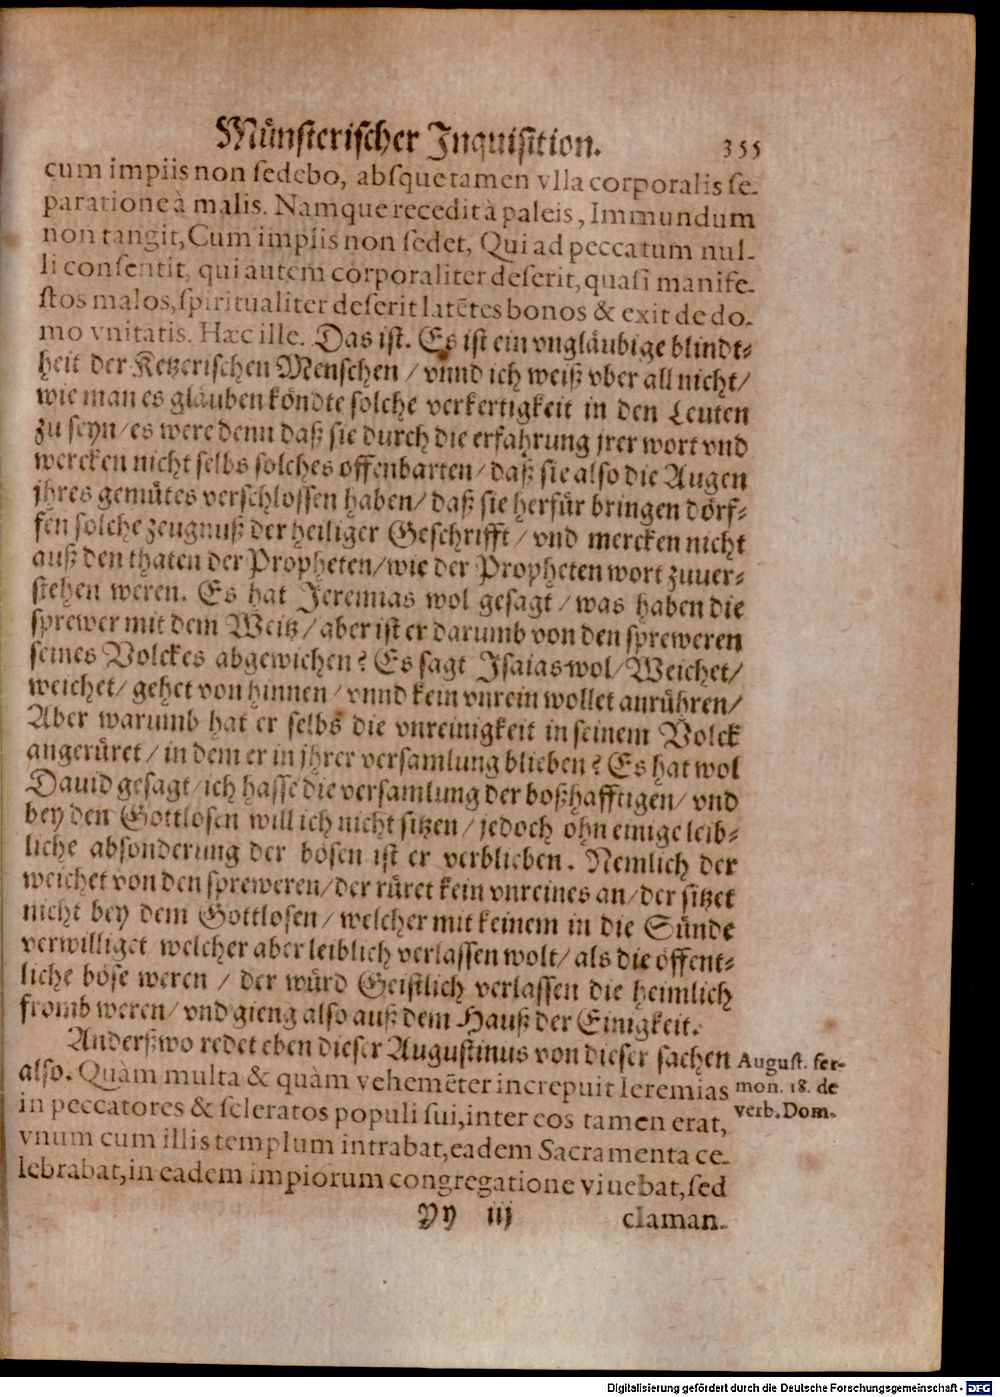 Münsterischer Inquisition. 355
cum impiis non sedebo, absque tamen vlla corporalis se-
paratione à malis. Namque recedit à paleis, Immundum
non tangit, Cum impiis non sedet, Qui ad peccatum nul-
li consentit, qui autem corporaliter deserit, quasi manife-
stos malos, spiritualiter deserit latētes bonos & exit de do-
mo vnitatis. Hæc ille. Das ist. Es ist ein vngläubige blindt-
heit der Ketzerischen Menschen / vnnd ich weiß vber all nicht /
wie man es glauben köndte solche verkertigkeit in den Leuten
zu seyn / es were denn daß sie durch die erfahrung jrer wort vnd
wercken nicht selbs solches offenbarten / daß sie also die Augen
jhres gemütes verschlossen haben / daß sie herfür bringen dörf-
fen solche zeugnuß der heiliger Geschrifft / vnd mercken nicht
auß den thaten der Propheten / wie der Propheten wort zuuer-
stehen weren. Es hat Jeremias wol gesagt / was haben die
sprewer mit dem Weitz / aber ist er darumb von den spreweren
seines Volckes abgewichen? Es sagt Isaias wol / Weichet /
weichet / gehet von hinnen / vnnd kein vnrein wollet anrühren /
Aber warumb hat er selbs die vnreinigkeit in seinem Volck
angerüret / in dem er in jhrer versamlung blieben? Es hat wol
Dauid gesagt / ich hasse die versamlung der boßhafftigen / vnd
bey den Gottlosen will ich nicht sitzen / jedoch ohn einige leib-
liche absonderung der bösen ist er verblieben. Nemlich der
weichet von den spreweren / der rüret kein vnreines an / der sitzet
nicht bey dem Gottlosen / welcher mit keinem in die Sünde
verwilliget welcher aber leiblich verlassen wolt / als die öffent-
liche böse weren / der würd Geistlich verlassen die heimlich
fromb weren / vnd gieng also auß dem Hauß der Einigkeit.
Anderßwo redet eben dieser Augustinus von dieser sachen
also. Quàm multa & quàm vehemēter increpuit Ieremias
in peccatores & sceleratos populi sui, inter eos tamen erat,
vnum cum illis templum intrabat, eadem Sacramenta ce-
lebrabat, in eadem impiorum congregatione viuebat, sed
Yy iij claman-
August. ser-
mon. 18. de
verb. Dom.
Digitalisierung gefördert durch die Deutsche Forschungsgemeinschaft - DFG